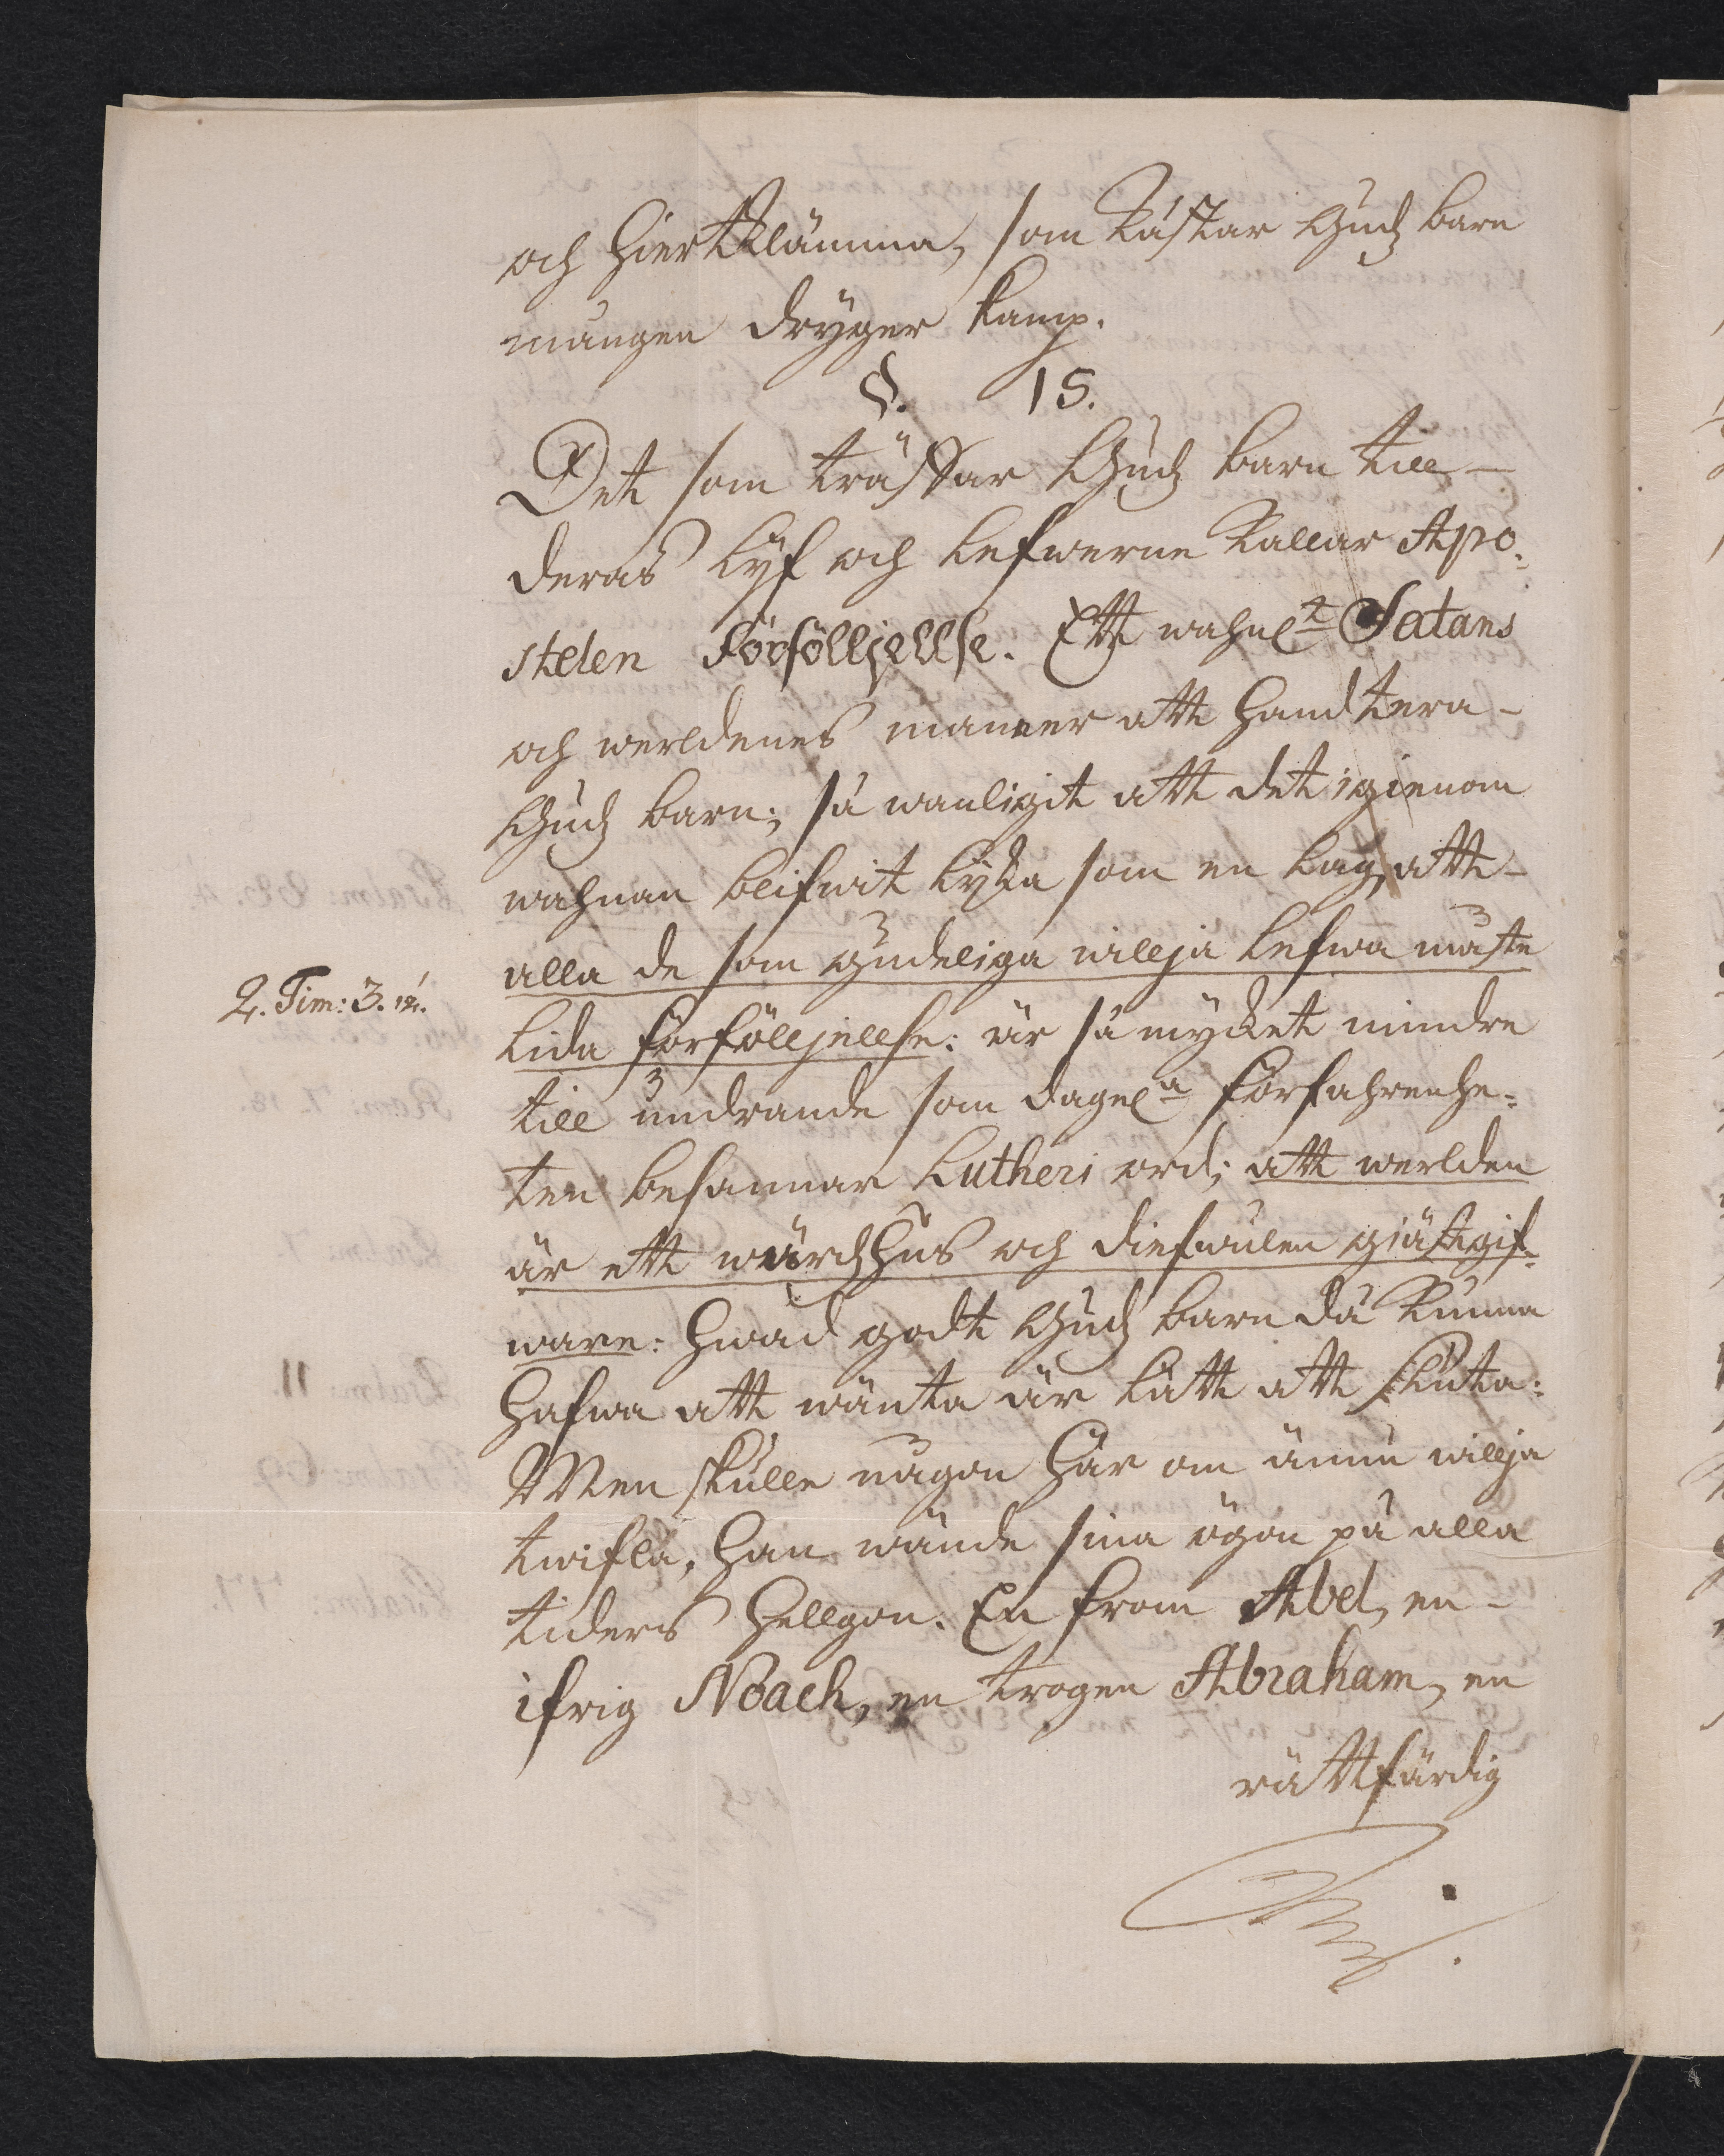 och Hiertklämma, som kåstar Gudz barn
mången dryger kamp.
§. 15.
Det som trässar Gudz barn till
deras Lyf och Lefwerne kallar Apo-
stelen Förfölljellse. Ett wahnl:t Satans
och werldenes maneer att handtera
Gudz barn; så wanligit att det igienom
wahnan blifwit lyka som en lag, att
alla de som gudeliga willja Lefwa måste
2. Tim: 3. 12.
Lida förfölljellse: är så mycket mindre
till undrande som dagl:a förfahrenhe-
ten besannar Lutheri ord; att werlden
är ett wärdzhus och diefwulen gjästgif-
ware: Hwad godt Gudz barn då kunna
Hafwa att wänta är lätt att sluta:
Men skulle någon här om ännu willja
twifla, han wände sina ögon på alla
tiders Hellgon. En from Abel, en
ifrig Noach, en trogen Abraham, en
rättfärdig